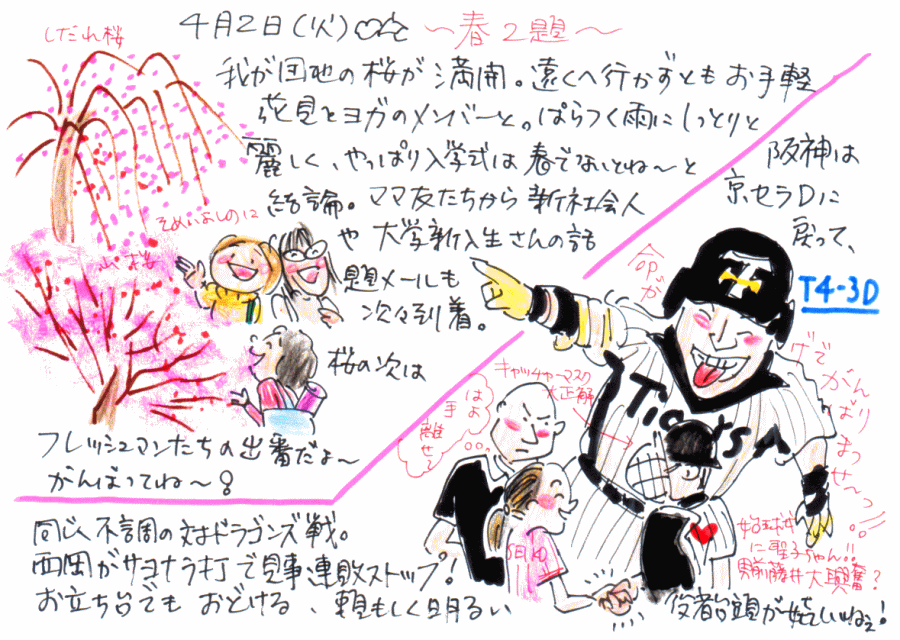 4月2日(火)
～春2題～
しだれ桜
我が団地の桜が満開。遠くへ行かずともお手軽
花見をヨガのメンバーと。ぱらつく雨にしっとりと
麗しく、やっぱり入学式は春でないとね～と
結論。ママ友たちから新社会人
や大学新入生さんの話
題メールも
次々到着。
そめいよしのに
山桜
桜の次は
フレッシュマンたちの出番だよ～
がんばってね～!
阪神は
京セラDに
戻って、
T4-3D
Topが
げで
がんばりまっせ～っ!
Tigers
キャッチャーマスク
大正解
はよ
手
離せ
始球式
に聖子ちゃん!!
藤井大興奮?
同じく不調の対ドラゴンズ戦。
西岡がサヨナラ打で見事連敗ストップ!
お立ち台でもおどける、頼もしく明るい
役者冥頭が嬉しいねぇ!